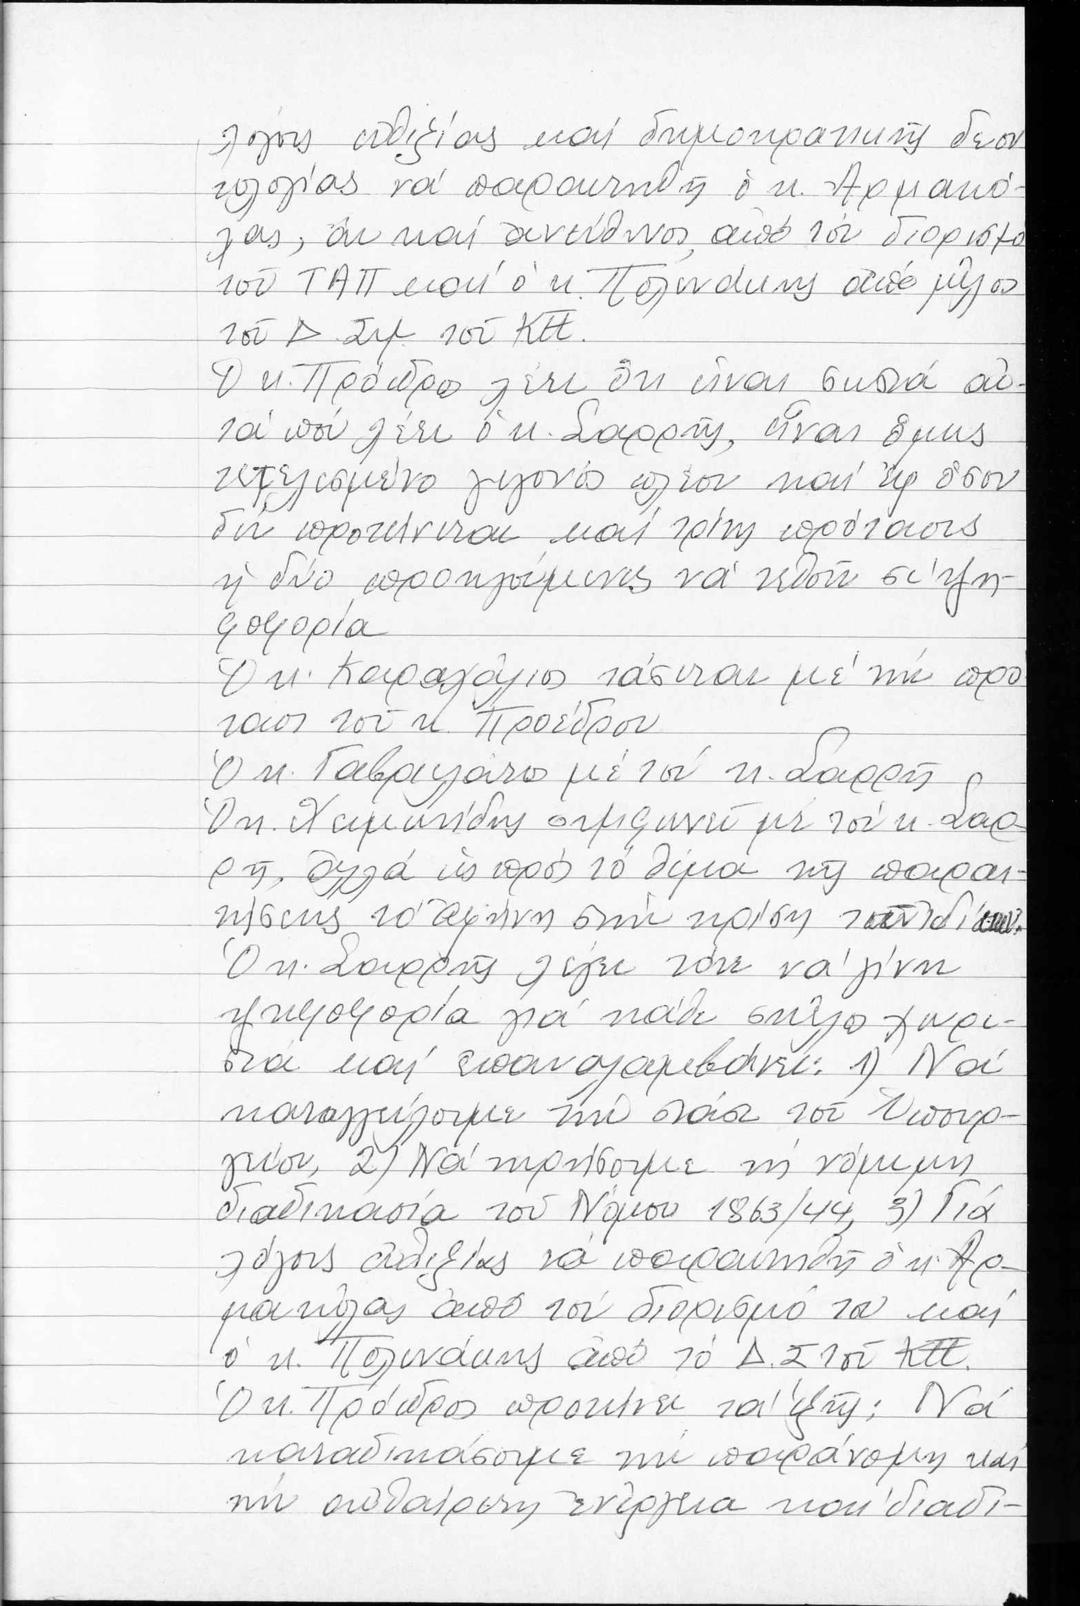 λόγους εὐθιξίας καί δημοκρατικῆς δεον
τολογίας νά παραιτηθῆ ὁ κ. Ἀρμακό-
λας, ἄν καί ἀνεύθυνος, ἀπό τόν διορισμό
τοῦ ΤΑΠ καί ὁ κ. Πολυνάκης ἀπό μέλος
τοῦ Δ. Συμ. τοῦ
Ὁ κ. Πρόεδρος λέει ὅτι εἶναι σωστά αὐ-
τά πού λέει ὁ κ. Σαρρῆς, εἶναι ὅμως
τετελεσμένο γεγονός πλέον καί ἐφ' ὅσον
δέν προτείνεται καί τρίτη πρότασις
ἡ δύο προηγούμενες νά τεθοῦν σέ ψη-
φοφορία
Ὁ κ. Καραγάλιος τάσεται μέ τήν πρό
ταση τοῦ κ. Προέδρου
Ὁ κ. Γαβαλάτος μέ τόν κ. Σαρρῆ
Ὁ κ. Χειμωνίδης συμφωνεῖ μέ τόν κ. Σαρ-
ρῆ, ἀλλά ὡς πρός τό θέμα τῆς παραι-
τήσεως τό ἀφήνει στήν κρίση τῶν ἰδίων.
Ὁ κ. Σαρρῆς λέγει τότε νά γίνη
ψηφοφορία γιά κάθε σκέλος χωρι-
στά καί ἐπαναλαμβάνει: 1) Νά
καταγγείλουμε τήν στάση τοῦ Ὑπουρ-
γείου, 2) Νά τηρήσουμε τή νόμιμη
διαδικασία τοῦ Νόμου 1863/44, 3) Γιά
λόγους εὐθιξίας νά παραιτηθῆ ὁ κ. Ἀρ-
μακόλας ἀπό τόν διορισμό του καί
ὁ κ. Πολυνάκης ἀπό τό Δ.Σ τοῦ
Ὁ κ. Πρόεδρος προτείνει τά ἑξῆς: Νά
καταδικάσουμε τήν παράνομη καί
τήν αὐθαίρετη ἐνέργεια καί διαδι-